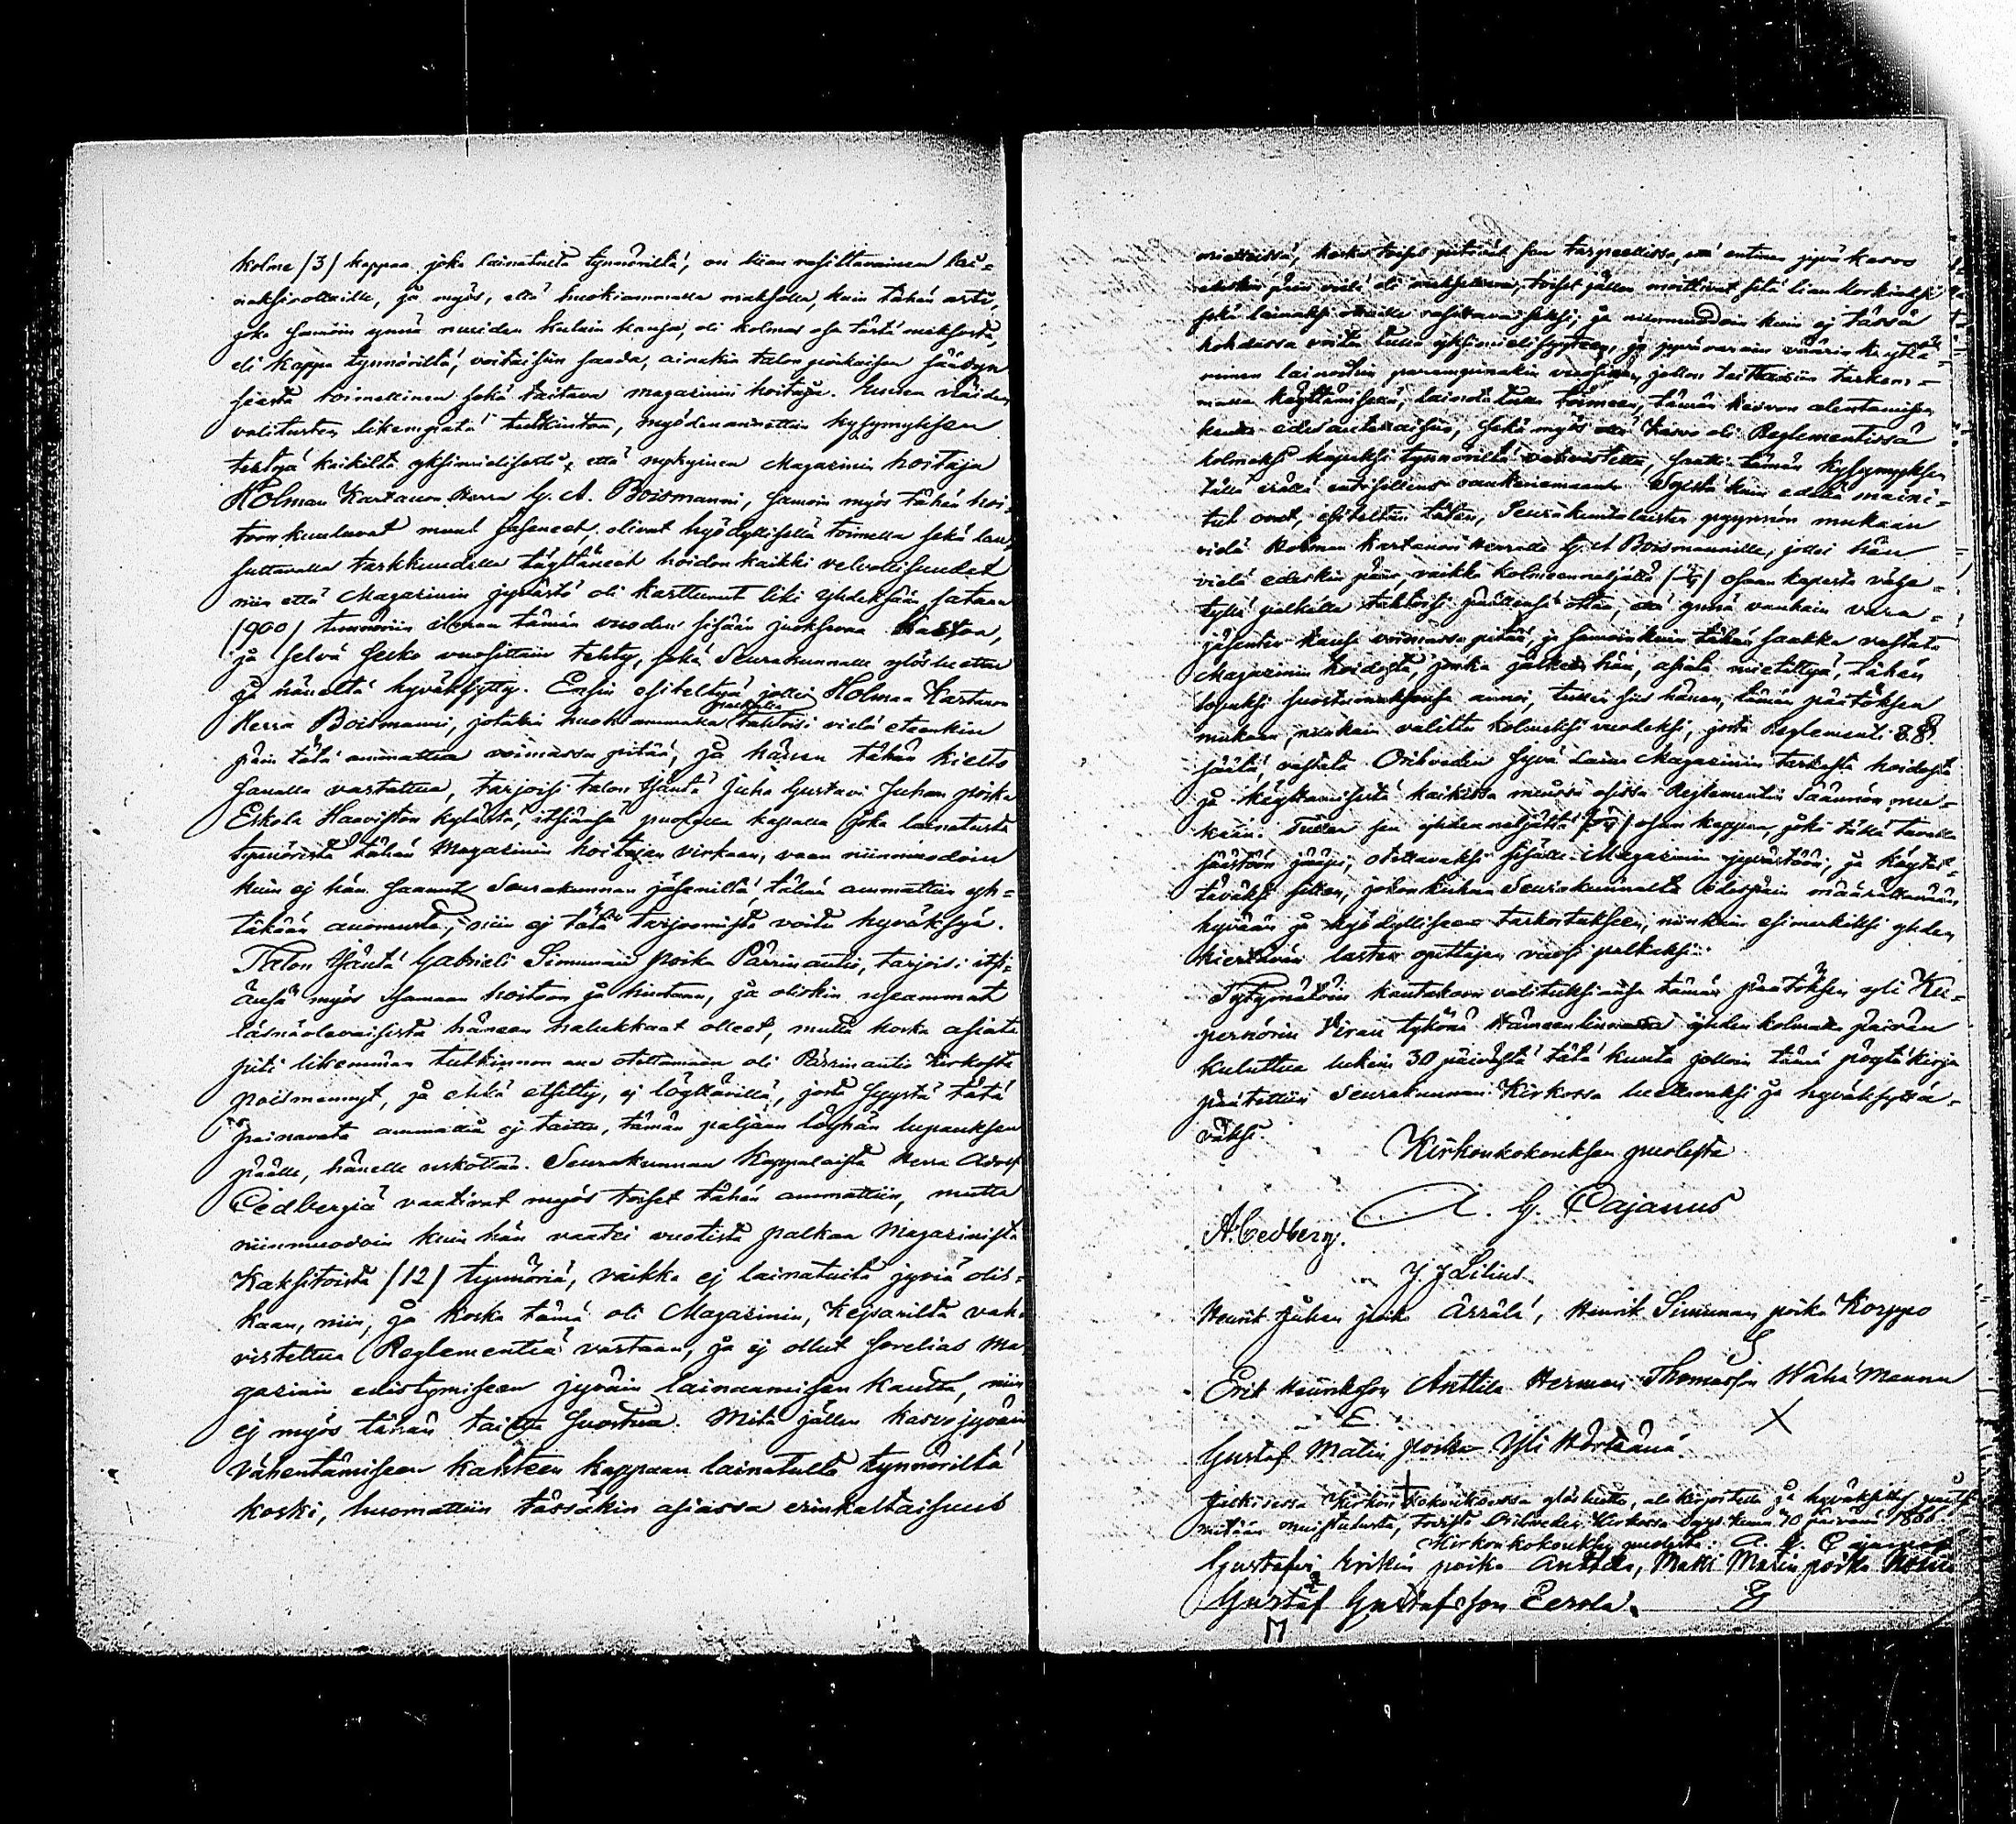 kolme /3/ kappaa joka lainatulta tynnöriltä, on liian rasittavainen lai=
naksiottaille, ja myös, että huokiammalla maksolla, kuin tähän asti,
joka samoin ynnä muiden kuluin kansa, oli kolmas osa tästä maksosta,
eli kappa tynnöriltä, voitaisiin saada, ainakin talon poikaisen säädyn
seasta toimellinen sekä taitava magasinin hoitaja. Kuin näiden
valitusten likempätä tutkintoa, myödenannettiin kysymyksen
tehtyä kaikilta yksimielisesti, että nykyinen Magasinin hoitaja
Holman Kartanon Herra G. A. Boismanni, samoin myös tähän hoi=
toon kuuluvat muut Jäsenet, olivat hyödyllisellä toimella sekä kau=
suttavalla tarkkuudella täyttäneet hoidon kaikki velvollisuudet
niin että Magasinin jyvästö oli karttunut liki yhdeksään sataan
/900/ tynnöriin ilman tämän vuoden sisään juoksevaa kasvoa,
ja selvä lasku vuosittain tehty, sekä Seurakunnalle ylösluettu
ja häneltä hyväksytty. Ensin esiteltyä jollei Holman Kartanon
Herra Boismanni, jotakin huokiammalla palkalla tahtoisi vielä eteenkin
päin tätä ammattia voimassa pitää, ja hänen tähän kielto
sanalla vastattua, tarjoisi talon Isäntä Juha Gustavi Juhan poika
Eskola Haaviston kylästä, itsiänsä puolella kapalla joka lainatusta
tynnöristä tähän Magasinin hoitajan virkaan, vaan niinmuodoin
kuin ej hän saanut Seurakunnan jäseniltä, tähän ammattiin yh=
täkään anomusta, niin ej tätä tarjoomista voitu hyväksyä.
Talon Isäntä Gabrieli Simunan poika Pärrinautio, tarjoisi itsi=
änsä myös samaan hoitoon ja hintaan, ja olisikin useammat
läsnäolevaisista häneen halukkaat olleet, mutta koska asiata
piti likemmän tutkinnon ala otettaman oli Pärrinautio Kirkosta
poismennyt, ja ehkä etsitty, ej löyttävillä, josta syystä tätä
painavata ammattia ej taittu, tämän paljaan löyhän lupauksen
päälle, hänelle uskottaa. Seurakunnan Kappalaista Herra Adolf
Cedbergiä vaativat myös toiset tähän ammattiin, mutta
niinmuodoin kuin hän vaatei vuotista palkkaa Magasinista
Kaksitoista /12/ tynnöriä, vaikka ej lainatuita jyviä olis=
kaan, niin, ja koska tämä oli Magasinin, Kejsarilta vah=
visteltua Reglementiä vastaan, ja ej ollut sovelias Ma=
gasinin edistymiseen jyväin lainaamisen kautta, niin
ej myös tähän taittu suostua. Mitä jällen kasvojyväin
vähentämiseen kahteen kappaan lainatulta tynnöriltä
koski, huomattiin tässäkin asiassa erinkaltaisuus
mielissä, koska toiset pitivät sen tarpeellissa, että entinen jyväkasvo
edeskin päin vielä oli maksettava, toiset jällen moittivat sitä lian korkiaksi
sekä lainaksi ottaille rasittavaiseksi; ja niinmuodoin kuin ej tässä
kohdassa voitu tulla yksimielisyyteen, ja jyvävarain väärin käyttä=
minen lainoihin parempinakin vuosina, jolloin taittaisiin tarkem=
malla käyttämisellä, lainoita tulla toimeen, tämän kasvon alentamisen
kautta edesautettaisiin, sekä myös että kasvo oli Reglementissä
kolmeksi kapaksi tynnöriltä vahvisteltu, raukesi tämän kysymyksen
tällä erällä entisellensä vaukenemaan. Syistä kuin edellä maini=
tut ovat, esiteltiin täten, Seurakuntalaisten pyynnön mukaan
vielä Holman Kartanon Herralle G. A. Boismannille, jollei hän
vielä edeskin päin vaikka kolmeenneljättä (¾) osaan kapasta vähe=
tyllä palkalla tahtoisi päällensä ottaa, että ynnä vanhain vara=
jäsenten kansa voimassa pitää, ja samoin kuin tähän saakka vastata
Magasinin hoidosta, jonka jälkeen hän, asiata mietittyä, tähän
lopuksi suostumuksensa annoi, tullen siis hänen, tämän päätöksen
mukaan, niinkuin valittu kolmeksi vuodeksi, josta Reglementi 8.§.
säätä, vastata Orihveden Jyvä Laina Magasinin tarkasta hoidosta
ja käyttämisestä kaikissa muissa osissa Reglementin Säännön mu=
kaan. Tullen sen yhden neljättä (¼) osan kappaa, joka tällä tavalla
säästöön jääpi, otettavaksi sisälle Magasinin jyvästöön, ja käytet=
täväksi siihen, johonkuhun Seurakunnalta edespäin määrättävään
hyvään ja hyödylliseen tarkoitukseen, niinkuin esimerkiksi yhden
kiertävän lasten opettajan vuosi palkaksi.
Tytymätöin hautakoon valituksiansa tämän päätöksen yli Ku=
pernörin Viran tykönä Hämeenlinnassa yhden kolmatta päivän
kuluttua lukein 30 päivästä tätä kuuta jolloin tämä pöytäkirja
päätettiin Seurakunnan Kirkossa luettavaksi ja hyväksyttä=
väksi.
Kirkonkokouksen puolesta
A. G. Cajanus
A. Cedberg.
J. J Lilius
Henrik Juhan poika Ärrälä, Henrik Simunan poika Korppo
Erik Henriksson Anttila Herman Thomasson Wähä Manna
E X
Gustaf Matin poika Yli Hörtsänä
Julkisessa Kirkon kokouksessa ylösluettu, alakirjoitettu ja hyväksytty
mitään muistutusta, todistaa Orihveden Kirkossa Syys kuun 30 päivänä 1866
Kirkonkokouksen puolesta: A. G. Cajanus
Gustafvi Erikin poika Anttila, Matti Matin poika
Gustaf Gustafsson Eerola.
M